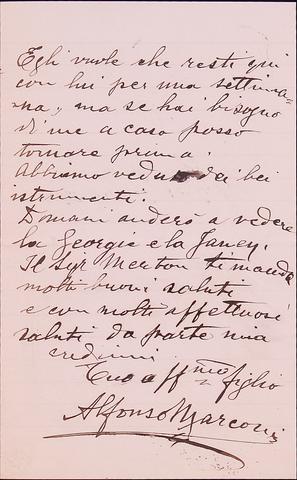 Egli vuole che resti qui
con lui per una settima-
na, ma se hai bisogno
di me a casa posso
tornare prima.
Abbiamo veduto dei bei
istrumenti.
Domani anderò a vedere
la Georgie e la Janey.
Il Sgr Merton ti manda
molti buoni saluti
e con molti affettuosi
saluti da parte mia
credimi
Tuo affmo figlio
Alfonso Marconi